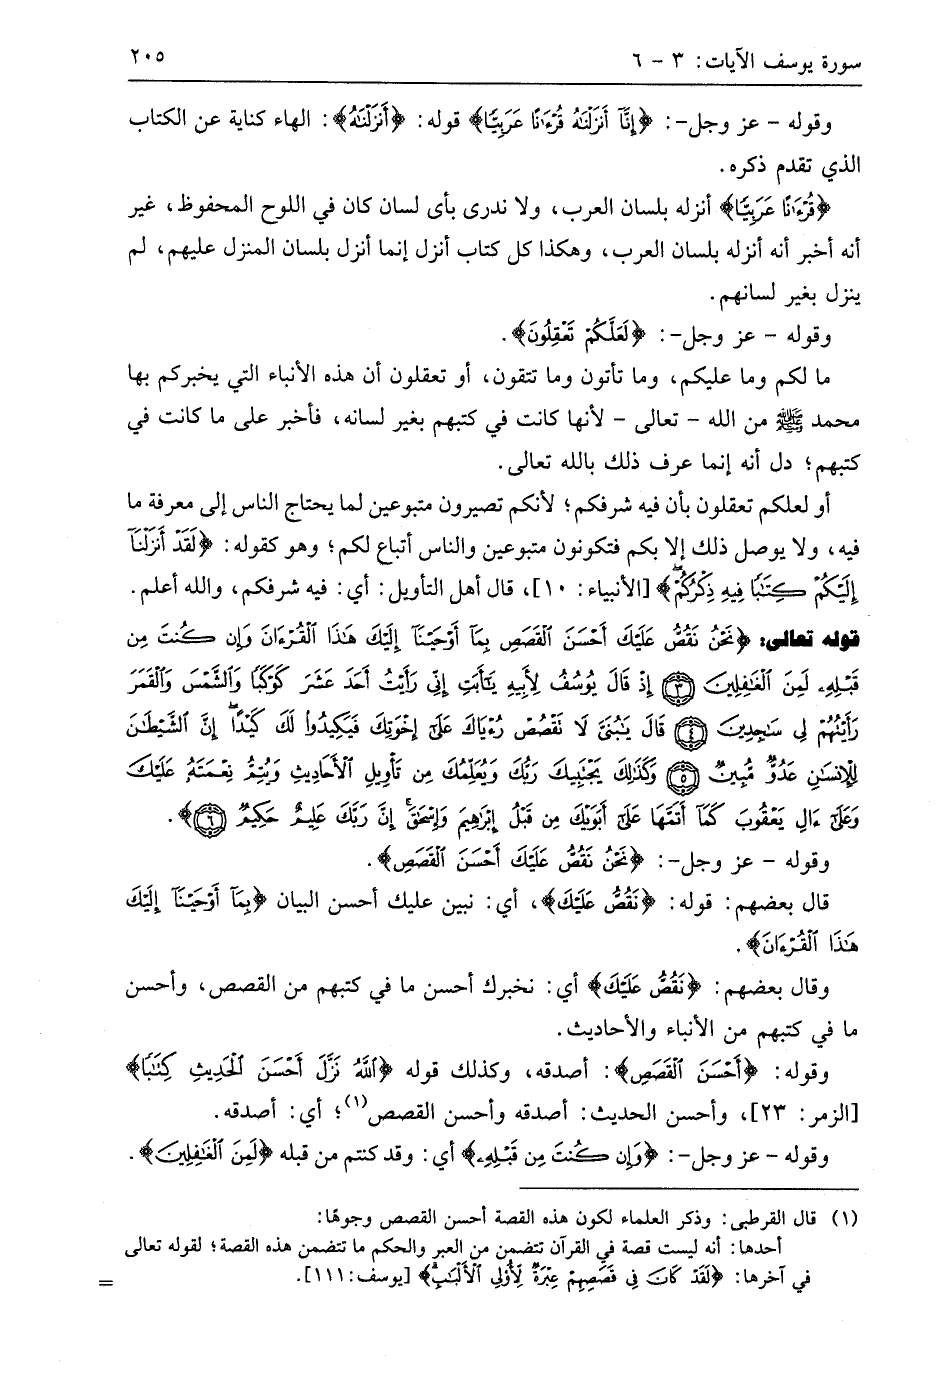 سورة يوسف الآيات: ٣ - ٦
٢٠٥
وقوله - عز وجل-: ﴿إِنَّآ أَنزَلْنَٰهُ قُرْءَٰنًا عَرَبِيًّا﴾ قوله: ﴿أَنزَلْنَٰهُ﴾: الهاء كناية عن الكتاب
الذي تقدم ذكره.
﴿قُرْءَٰنًا عَرَبِيًّا﴾ أنزله بلسان العرب، ولا ندرى بأى لسان كان في اللوح المحفوظ، غير
أنه أخبر أنه أنزله بلسان العرب، وهكذا كل كتاب أنزل إنما أنزل بلسان المنزل عليهم، لم
ينزل بغير لسانهم.
وقوله - عز وجل-: ﴿لَعَلَّكُمْ تَعْقِلُونَ﴾.
ما لكم وما عليكم، وما تأتون وما تتقون، أو تعقلون أن هذه الأنباء التي يخبركم بها
محمد ﷺ من الله - تعالى - لأنها كانت في كتبهم بغير لسانه، فأخبر على ما كانت في
كتبهم؛ دل أنه إنما عرف ذلك بالله تعالى.
أو لعلكم تعقلون بأن فيه شرفكم؛ لأنكم تصيرون متبوعين لما يحتاج الناس إلى معرفة ما
فيه، ولا يوصل ذلك إلا بكم فتكونون متبوعين والناس أتباع لكم؛ وهو كقوله: ﴿لَقَدْ أَنزَلْنَآ
إِلَيْكُمْ كِتَٰبًا فِيهِ ذِكْرُكُمْ ۖ﴾ [الأنبياء: ١٠]، قال أهل التأويل: أي: فيه شرفكم، والله أعلم.
قوله تعالى: ﴿نَحْنُ نَقُصُّ عَلَيْكَ أَحْسَنَ ٱلْقَصَصِ بِمَآ أَوْحَيْنَآ إِلَيْكَ هَٰذَا ٱلْقُرْءَانَ وَإِن كُنتَ مِن
قَبْلِهِۦ لَمِنَ ٱلْغَٰفِلِينَ ۝٣ إِذْ قَالَ يُوسُفُ لِأَبِيهِ يَٰٓأَبَتِ إِنِّي رَأَيْتُ أَحَدَ عَشَرَ كَوْكَبًا وَٱلشَّمْسَ وَٱلْقَمَرَ
رَأَيْتُهُمْ لِي سَٰجِدِينَ ۝٤ قَالَ يَٰبُنَيَّ لَا تَقْصُصْ رُءْيَاكَ عَلَىٰٓ إِخْوَتِكَ فَيَكِيدُوا۟ لَكَ كَيْدًا ۖ إِنَّ ٱلشَّيْطَٰنَ
لِلْإِنسَٰنِ عَدُوٌّ مُّبِينٌ ۝٥ وَكَذَٰلِكَ يَجْتَبِيكَ رَبُّكَ وَيُعَلِّمُكَ مِن تَأْوِيلِ ٱلْأَحَادِيثِ وَيُتِمُّ نِعْمَتَهُۥ عَلَيْكَ
وَعَلَىٰٓ ءَالِ يَعْقُوبَ كَمَآ أَتَمَّهَا عَلَىٰٓ أَبَوَيْكَ مِن قَبْلُ إِبْرَٰهِيمَ وَإِسْحَٰقَ ۚ إِنَّ رَبَّكَ عَلِيمٌ حَكِيمٌ ۝٦﴾.
وقوله - عز وجل-: ﴿نَحْنُ نَقُصُّ عَلَيْكَ أَحْسَنَ ٱلْقَصَصِ﴾.
قال بعضهم: قوله: ﴿نَقُصُّ عَلَيْكَ﴾، أي: نبين عليك أحسن البيان ﴿بِمَآ أَوْحَيْنَآ إِلَيْكَ
هَٰذَا ٱلْقُرْءَانَ﴾.
وقال بعضهم: ﴿نَقُصُّ عَلَيْكَ﴾ أي: نخبرك أحسن ما في كتبهم من القصص، وأحسن
ما في كتبهم من الأنباء والأحاديث.
وقوله: ﴿أَحْسَنَ ٱلْقَصَصِ﴾: أصدقه، وكذلك قوله ﴿ٱللَّهُ نَزَّلَ أَحْسَنَ ٱلْحَدِيثِ كِتَٰبًا﴾
[الزمر: ٢٣]، وأحسن الحديث: أصدقه وأحسن القصص(١)؛ أي: أصدقه.
وقوله - عز وجل-: ﴿وَإِن كُنتَ مِن قَبْلِهِۦ﴾ أي: وقد كنتم من قبله ﴿لَمِنَ ٱلْغَٰفِلِينَ﴾.
(١) قال القرطبى: وذكر العلماء لكون هذه القصة أحسن القصص وجوهًا:
أحدها: أنه ليست قصة في القرآن تتضمن من العبر والحكم ما تتضمن هذه القصة؛ لقوله تعالى
في آخرها: ﴿لَقَدْ كَانَ فِي قَصَصِهِمْ عِبْرَةٌ لِّأُو۟لِي ٱلْأَلْبَٰبِ ۗ﴾ [يوسف: ١١١].
=